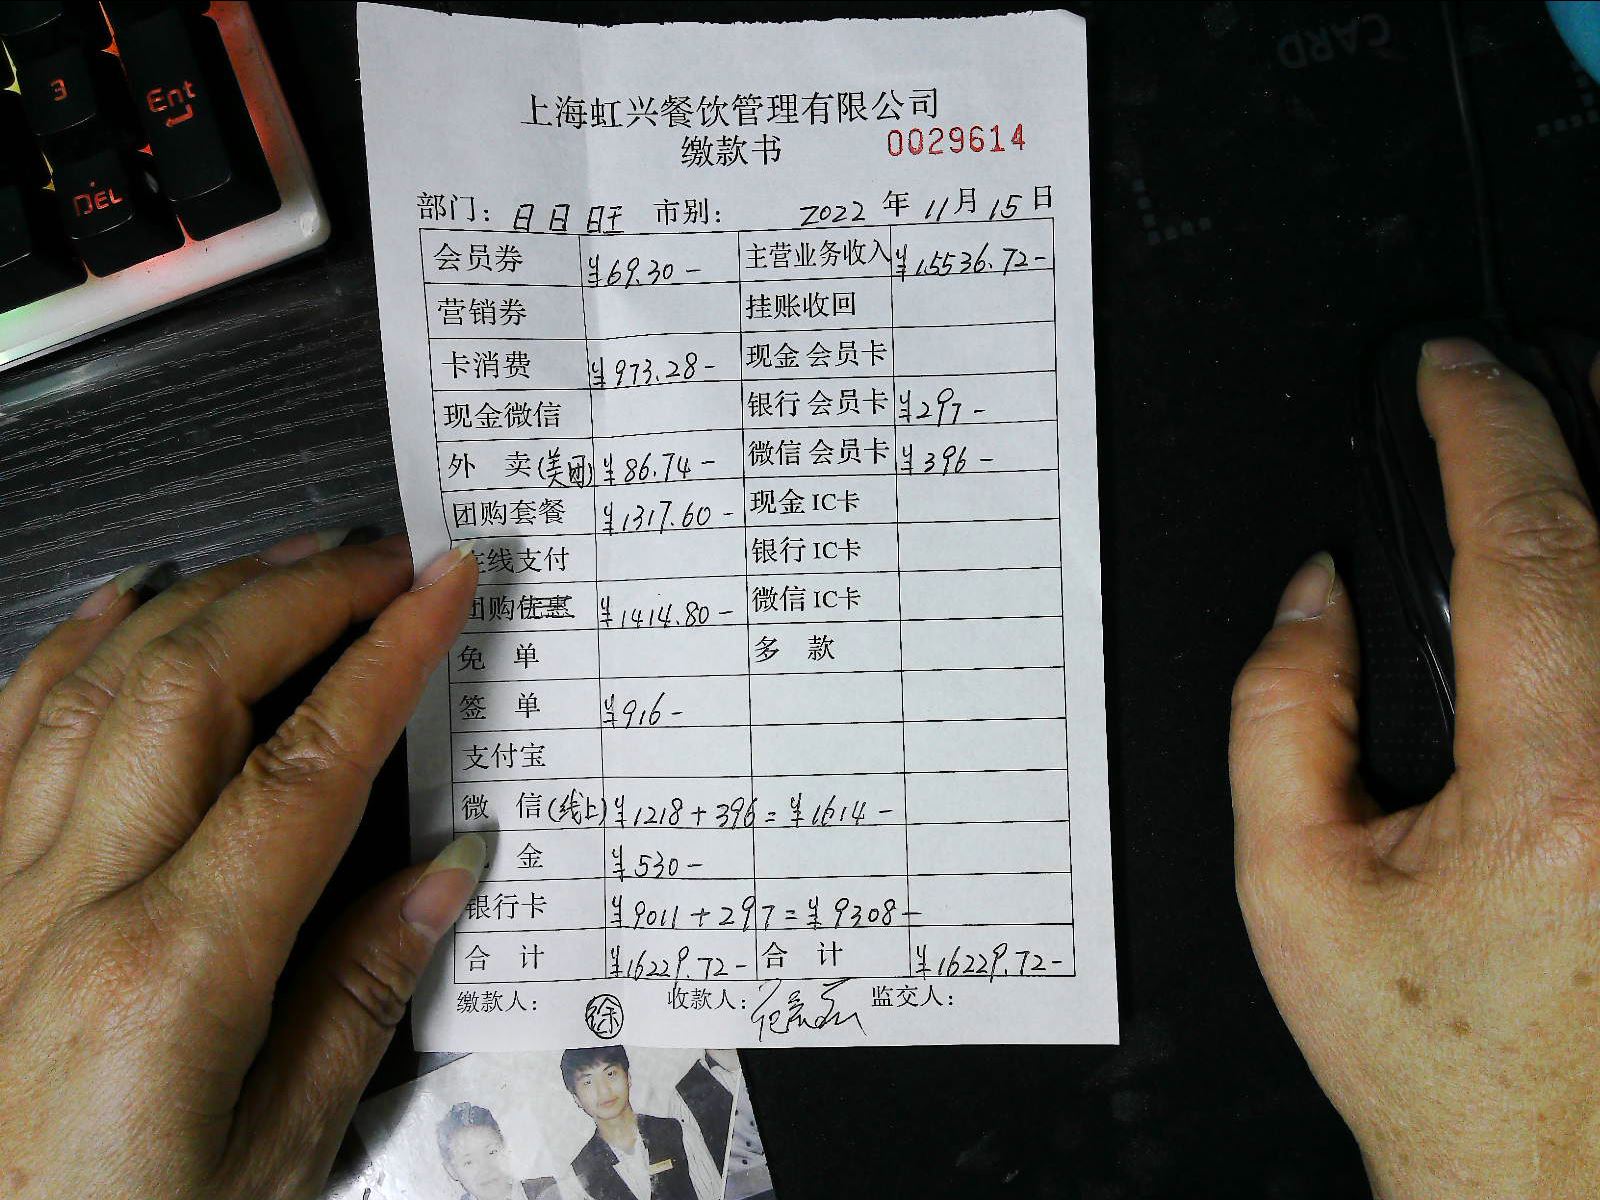 上海虹兴餐饮管理有限公司
缴款书 0029614
部门: 日日旺 市别: 2022 年 11 月 15 日
会员券 ¥69.30- 主营业务收入 ¥15536.72-
营销券 挂账收回
卡消费 ¥973.28- 现金 会员卡
现金微信 银行 会员卡 ¥297-
外 卖(美团) ¥86.74- 微信 会员卡 ¥396-
团购套餐 ¥1317.60- 现金 IC卡
在线支付 银行 IC卡
团购优惠 ¥1414.80- 微信 IC卡
免 单 多 款
签 单 ¥916-
支付宝
微 信(线上) ¥1218+396=¥1614-
金 ¥530-
银行卡 ¥9011+297=¥9308-
合 计 ¥16229.72- 合 计 ¥16229.72-
缴款人: 徐 收款人: 监交人:
3
Ent
DEL
CARD